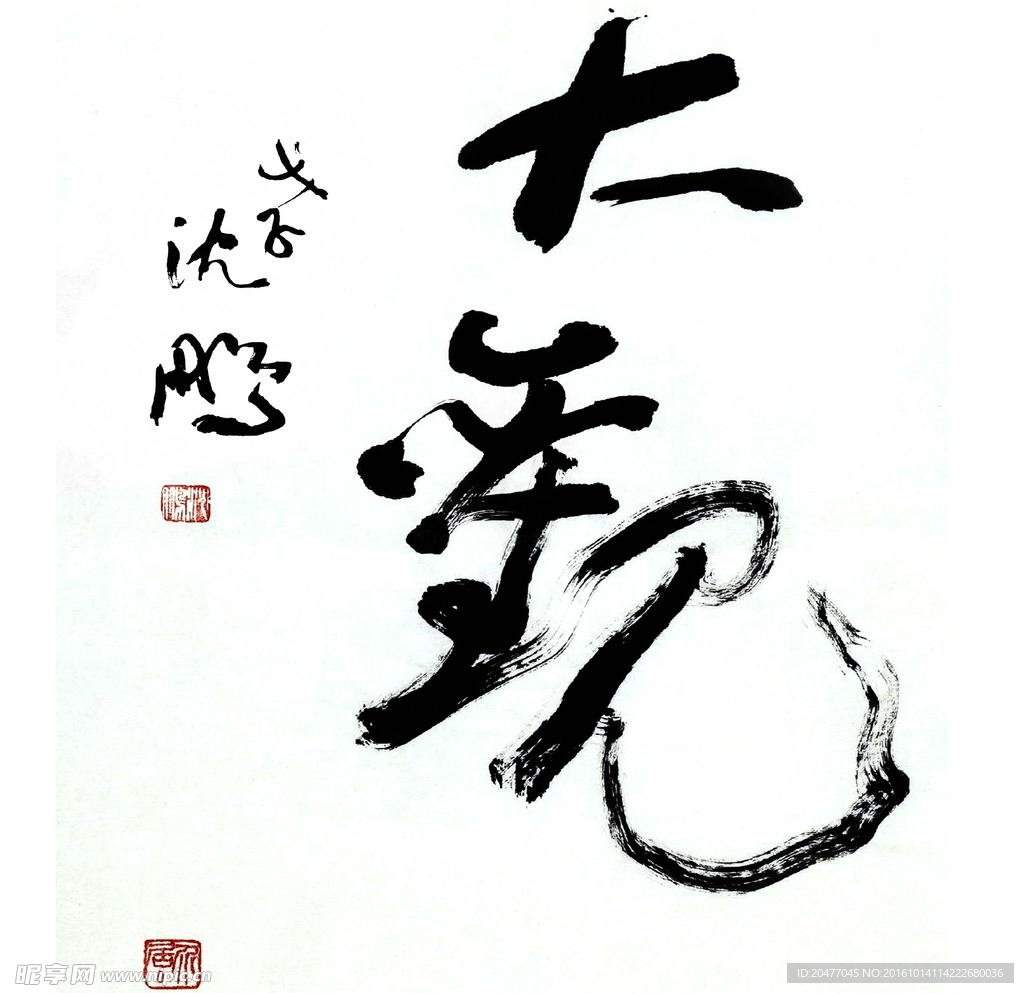 大觀
戊子
沈鵬
昵享网 www.nipic.cn
ID:20477045 NO:20161014114222680036